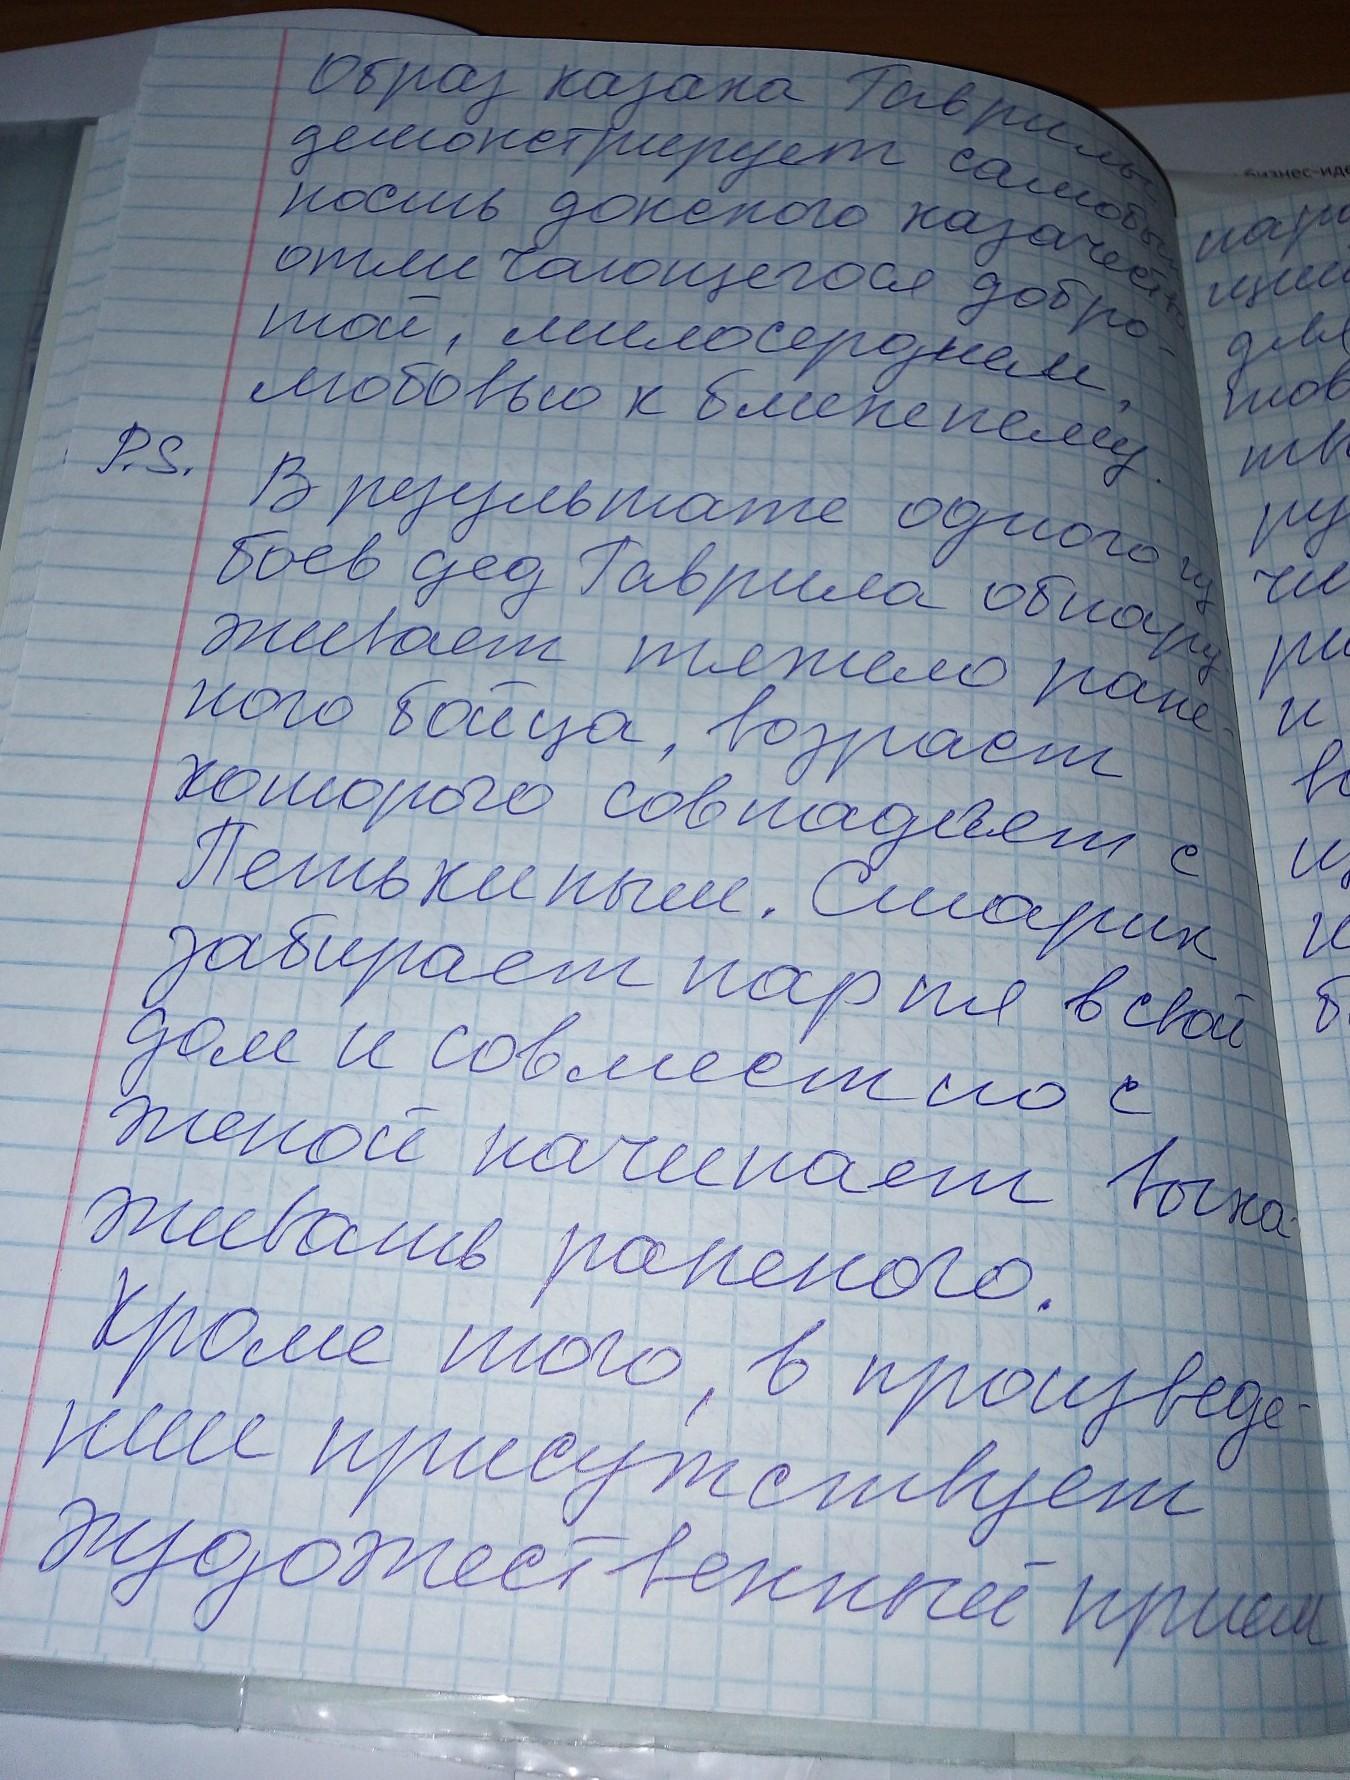 Образ казака Гаврилы
демонстрирует самобыт
ность донского казачества
отличающегося добро-
той, милосердием,
любовью к ближнему.
P.S. В результате одного из
боев дед Гаврила обнару
живает тяжело ране-
ного бойца, возраст
которого совпадает с
Петькиным. Старик
забирает парня в свой
дом и совместно с
женой начинает выха-
живать раненого.
Кроме того, в произведе-
нии присутствует
художественный прием
бизнес-иде
пар
ции
для
тов
тв
ру
чи
ри
и
во
из
и
б